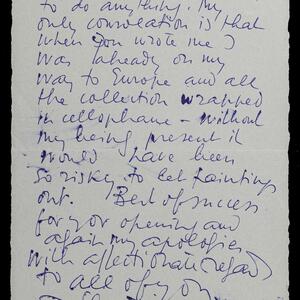 to do anything. My
only consolation is that
when you wrote me I
was already on my
way to Europe and all
the collection wrapped
in cellophane - without
my being present it
would have been
so risky to let paintings
out. Best of success
for your opening and
again my apologies
with affectionate regard
to all of you